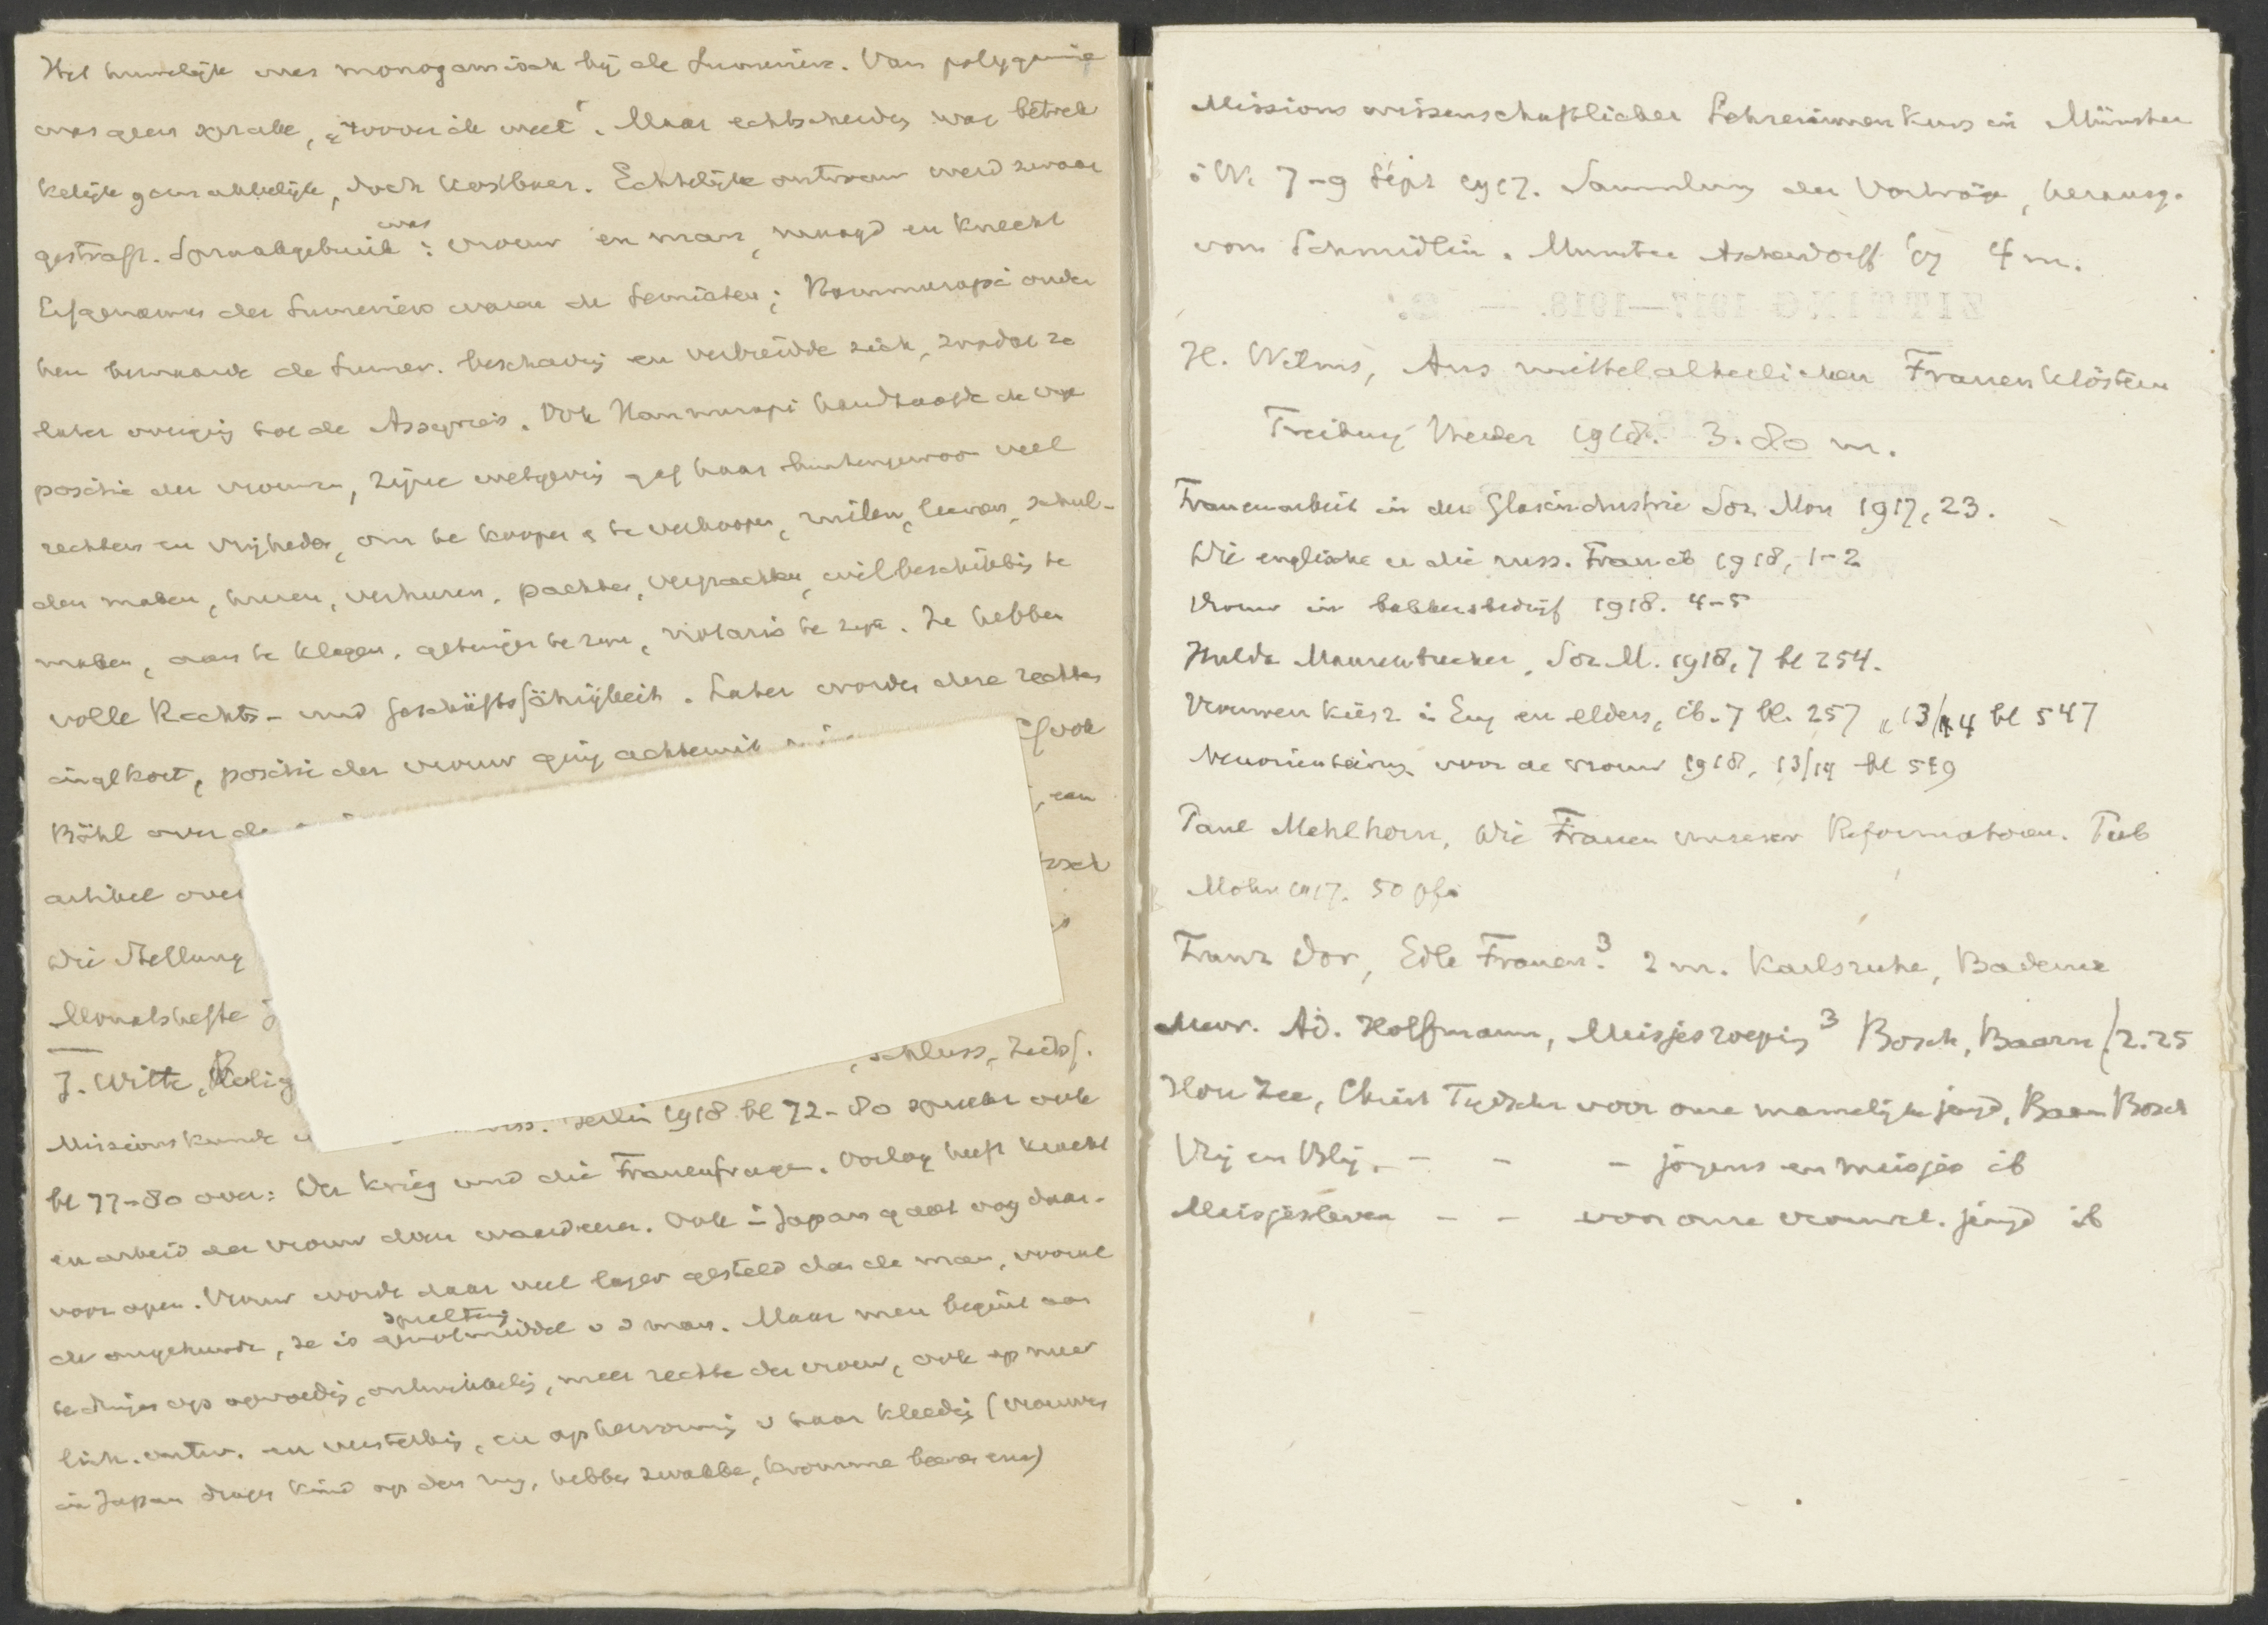 Het huwelijk was monogamisch bij de Sumeriërs. Van polygamie
was geen sprake, "zoover ik weet". Maar echtscheiding was betrek
kelijk gemakkelijk, doch kostbaar. Echtelijke ontrouw werd zwaar
gestraft. Spraakgebruik was: vrouw en man, maagd en knecht
Erfgenamen der Sumeriërs waren de Semieten; Hammurapi onder
hen bewaarde de Sumer. beschaving en verbreidde zich, zoodat ze
later overging tot de Assyriers. Ook Hammurapi handhaafde de vrije
positie der vrouwen, zijne wetgeving gaf haar buitengewoon veel
rechten en vrijheden, om te koopen & te verkoopen, ruilen, leenen, schul-
den maken, huren, verhuren, pachten, verpachten, wilbeschikking te
maken, aan te klagen, getuige te zijn, notaris te zijn. Ze hebben
volle Rechts- und Geschäftsfähigkeit. Later worden deze rechten
ingekort, positie der vrouw ging achteruit
Böhl over de
artikel over
Die Stellung
Monatshefte
J. Witte, Relig
schluss, Zeits.
Missionskunde Berlin 1918 bl 72-80 spreekt ook
bl 77-80 over: Der Krieg und die Frauenfrage. Oorlog heeft kracht
en arbeid der vrouw doen waardeeren. Ook in Japan gaat oog daar-
voor open. Vrouw wordt daar veel lager gesteld dan de man, vooral
de ongehuwde, ze is speeltuig genotmiddel v d man. Maar men begint aan
te dringen op opvoeding, ontwikkeling, meer rechten der vrouw, ook op meer
lich. ontw. en versterking, en op hervorming v haar kleeding (vrouwen
in Japan dragen kind op den rug, hebben zwakke, kromme beenen enz)
Missionswissenschaftlicher Lehrerinnenkurs in Münster
i W. 7-9 Sept 1917. Sammlung der Vorträge, herausg.
von Schmidlin. Munster Aschendorff 4 m.
H. Wilms, Aus mittelalterlichen Frauenklöstern
Freiburg Herder 1918. 3.80 m.
Frauenarbeit in der Glasindustrie Soz Mon 1917, 23.
Die englische u die russ. Frau ib 1918, 1-2
Vrouw in bakkersbedrijf 1918. 4-5
Hulda Maurenbrecher, Soz M. 1918, 7 bl 254.
Vrouwenkiesr. in Eng en elders, ib. 7 bl. 257 " 13/14 bl 547
Neuorientierung voor de vrouw 1918, 13/14 bl 519
Paul Mehlhorn, Die Frauen unserer Reformatoren. Tub
Mohr 1917. 50 pfg
Franz Dor, Edle Frauen.³ 2 m. Karlsruhe, Badenia
Mevr. Ad. Hoffmann, Meisjesroeping³ Bosch, Baarn f2.25
Hou Zee, Christ Tijdschr voor onze mannelijke jeugd, Baarn Bosch
Vrij en Blij. - - - jongens en meisjes ib
Meisjesleven - - voor onze vrouwel. jeugd ib